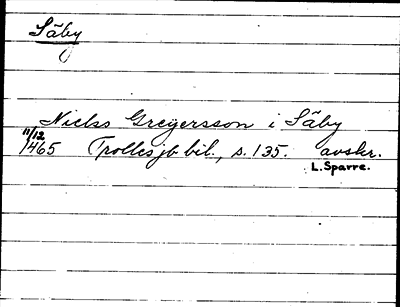 Säby
Niclss Gregersson i Säby
11/12
1465 Trolles jb bil., s. 135. avskr.
L. Sparre.